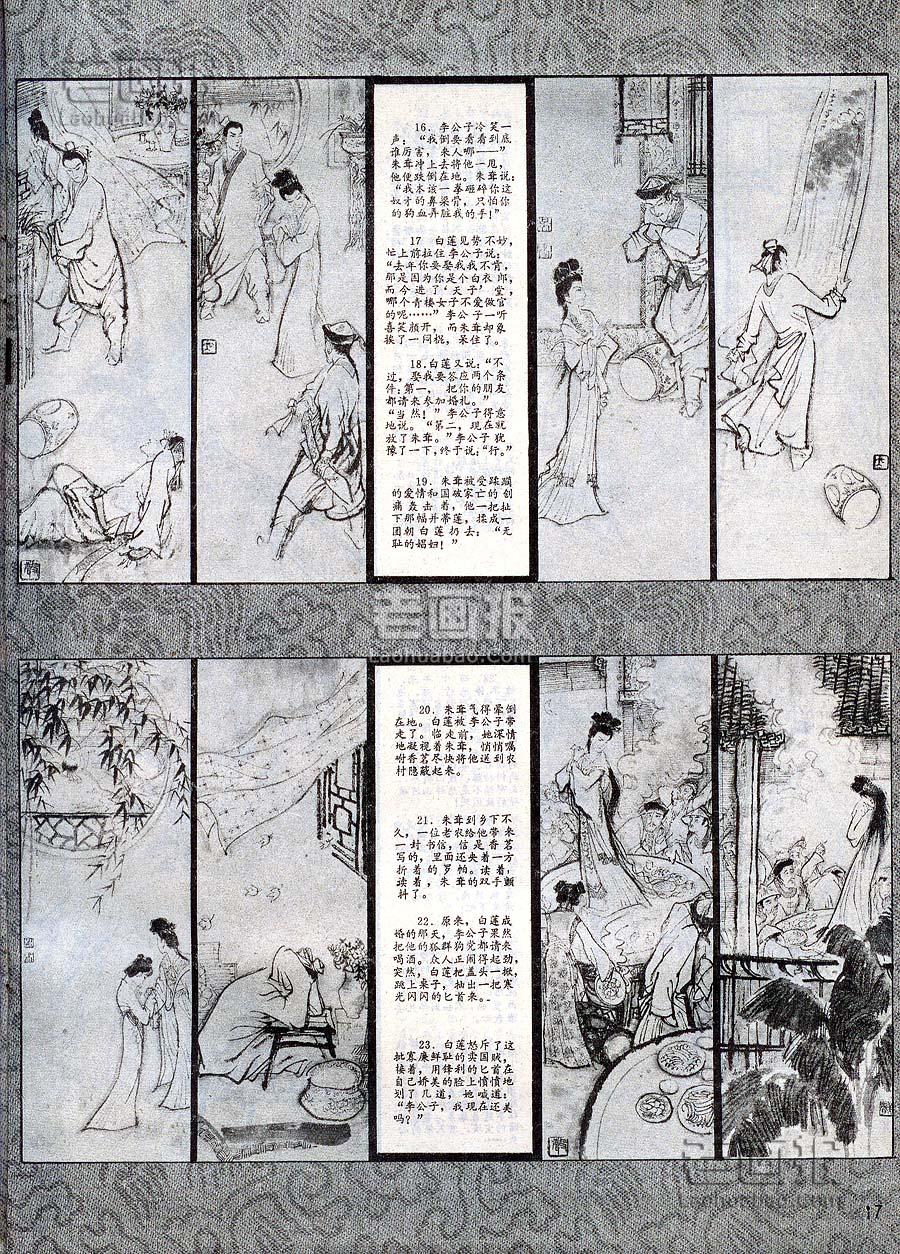 老画报
Laohuabao.com
16．李公子冷笑一
声：“我倒要看看到底
谁厉害，来人哪——”
朱耷冲上去将他一甩，
他便跌倒在地。朱耷说：
“我本该一拳砸碎你这
奴才的鼻梁骨，只怕你
的狗血弄脏我的手！”
17 白莲见势不妙，
忙上前拉住李公子说：
“去年你要娶我我不肯，
那是因为你是个白衣郎，
而今进了‘天子’堂，
哪个青楼女子不爱做官
的呢……”李公子一听
喜笑颜开，而朱耷却象
挨了一闷棍，呆住了。
18．白莲又说：“不
过，娶我要答应两个条
件：第一， 把你的朋友
都请来参加婚礼。”
“当然！”李公子得意
地说。“第二，现在就
放了朱耷。”李公子犹
豫了一下，终于说：“行。”
19．朱耷被受蹂躏
的爱情和国破家亡的创
痛轰击着，他一把扯
下那幅并蒂莲，揉成一
团朝白莲扔去：“无
耻的娼妇！”
老画报
Laohuabao.com
20．朱耷气得晕倒
在地。白莲被李公子带
走了。临走前，她深情
地凝视着朱耷，悄悄嘱
咐香茗尽快将他送到农
村隐蔽起来。
21．朱耷到乡下不
久，一位老农给他带来
一封书信，信是香茗
写的，里面还夹着一方
折着的罗帕。读着，
读着，朱耷的双手颤
抖了。
22．原来，白莲成
婚的那天，李公子果然
把他的狐群狗党都请来
喝酒。众人正闹得起劲，
突然，白莲把盖头一掀，
跳上桌子，抽出一把寒
光闪闪的匕首来。
23．白莲怒斥了这
批寡廉鲜耻的卖国贼，
接着，用锋利的匕首在
自己娇美的脸上愤愤地
划了几道，她喊道：
“李公子，我现在还美
吗？”
老画报
Laohuabao.com
17